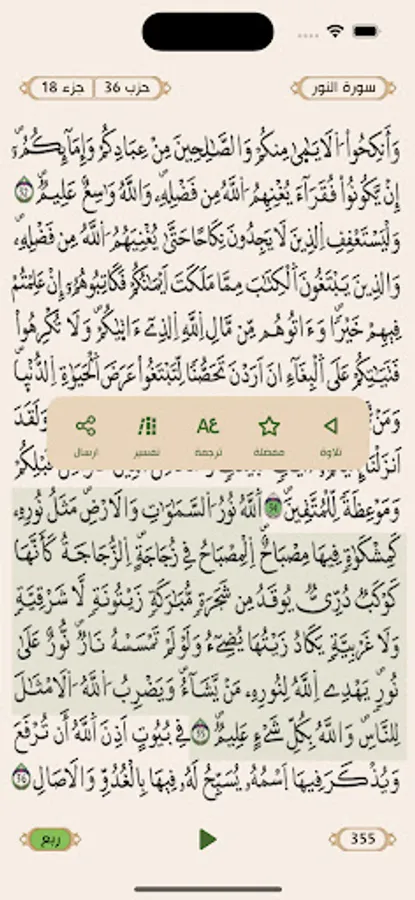 سورة النور
حزب 36 جزء 18
وَأَنكِحُواْ اُلَايَٰمَىٰ مِنكُمْ وَالصَّٰلِحِينَ مِنْ عِبَادِكُمْ وَإِمَآئِكُمُۥٓ
إِنْ يَّكُونُواْ فُقَرَآءَ يُغْنِهِمُ اُللَّهُ مِن فَضْلِهِۦ وَاللَّهُ وَٰسِعٌ عَلِيمٌ 32
وَلْيَسْتَعْفِفِ اِلذِينَ لَا يَجِدُونَ نِكَاحًا حَتَّىٰ يُغْنِيَهُمُ اُللَّهُ مِن فَضْلِهِۦ
وَالذِينَ يَبْتَغُونَ اَلْكِتَٰبَ مِمَّا مَلَكَتَ اَيْمَٰنُكُمْ فَكَاتِبُوهُمُۥٓ إِنْ عَلِمْتُمْ
فِيهِمْ خَيْرًا وَءَاتُوهُم مِّن مَّالِ اِللَّهِ اِلذِےٓ ءَات۪يٰكُمْ وَلَا تُكْرِهُواْ
فَتَيَٰتِكُمْ عَلَى اَلْبِغَآءِ انَ اَرَدْنَ تَحَصُّنًا لِّتَبْتَغُواْ عَرَضَ اَلْحَيَوٰةِ اِلدُّنْي۪ا
وَمَنْ وَلَقَدَ
تلاوة مفضلة ترجمة تفسير ارسال
اَنزَلْنَآ قَبْلِكُمْ
وَمَوْعِظَةً لِّلْمُتَّقِينَ 34 اَللَّهُ نُورُ اُلسَّمَٰوَٰتِ وَالَارْضِ مَثَلُ نُورِهِۦ
كَمِشْكَوٰةٍ فِيهَا مِصْبَاحٌ اِلْمِصْبَاحُ فِے زُجَاجَةٍ اِلزُّجَاجَةُ كَأَنَّهَا
كَوْكَبٌ دُرِّيٌّ يُوقَدُ مِن شَجَرَةٍ مُّبَٰرَكَةٍ زَيْتُونَةٍ لَّا شَرْقِيَّةٍ
وَلَا غَرْبِيَّةٍ يَكَادُ زَيْتُهَا يُضِےٓءُ وَلَوْ لَمْ تَمْسَسْهُ نَارٌ نُّورٌ عَلَىٰ
نُورٍ يَهْدِے اِللَّهُ لِنُورِهِۦ مَنْ يَّشَآءُ وَيَضْرِبُ اُللَّهُ اُلَامْثَٰلَ
لِلنَّاسِ وَاللَّهُ بِكُلِّ شَےْءٍ عَلِيمٌ 35 فِے بُيُوتٍ اَذِنَ اَللَّهُ أَن تُرْفَعَ
وَيُذْكَرَ فِيهَا اَسْمُهُۥ يُسَبِّحُ لَهُۥ فِيهَا بِالْغُدُوِّ وَالَاصَالِ 36
355
ربع